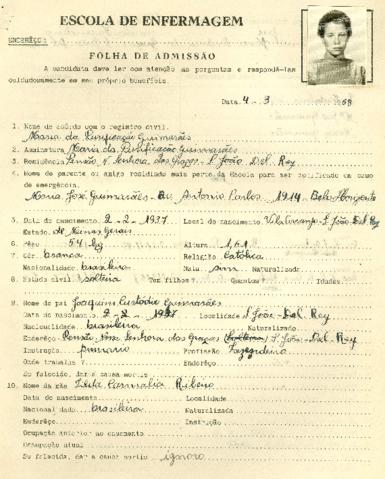 ESCOLA DE ENFERMAGEM
ENDERÊÇO:
FOLHA DE ADMISSÃO
A candidata deve ler com atenção as perguntas e respondê-las
cuidadosamente em seu próprio benefício.
Data 4 - 3 1958
1. Nome de acôrdo com o registro civil.
Maria da Purificação Guimarães
2. Assinatura Maria da Purificação Guimarães
3. Residência Pensão N. Senhora das Graças - S. João Del Rey
4. Nome de parente ou amigo residindo mais perto da Escola para ser notificado em caso
de emergência.
Maria José Guimarães - Av. Antonio Carlos 1914 Belo Horizonte
5. Data do nascimento 2 - 2 - 1937 Local do nascimento S. João Del Rey
Estado de Minas Gerais
6. Pêso 54 kg Altura 1,61
7. Côr branca Religião Católica
Nacionalidade brasileira Nata sim Naturalizada
8. Estado civil solteira Tem filhos? Quantos? Idades
9. Nome do pai Joaquim Custódio Guimarães
Data do nascimento 2 - 2 - Localidade S. João - Del - Rey
Nacionalidade brasileira Naturalizado
Enderêço Pensão Nossa Senhora das Graças S. João - Del - Rey
Instrução primario Profissão Fazendeiro
Onde trabalha? Enderêço
Se falecido, dar a causa mortis
10. Nome da mãe Ribeiro
Data do nascimento Localidade
Nacionalidade brasileira Naturalizada
Enderêço Instrução
Ocupação anterior ao casamento
Ocupação atual
Se falecida, dar a causa mortis ignoro